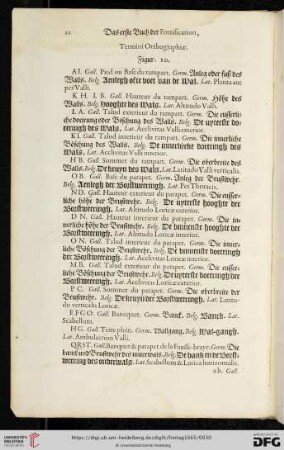 32. Das erste Buch der Fortification,
Termini Orthographiæ.
Figur. 10.
A I. Gall. Pied ou Base du rampart. Germ. Anleg oder fuß des
Walls. Belg. Aenlegh ofte voet van de Wal. Lat. Planta aut
pes Valli.
K H. I B. Gall. Hauteur du rampart. Germ. Höhe des
Walls. Belg. hooghte des Wals. Lat. Altitudo Valli.
I. A. Gall. Talud exterieur du rampart. Germ. Die eusserli-
che doerung oder Böschung des Walls. Belg. De upterste do-
eringh des Wals. Lat. Acclivitas Valli exterior.
K I. Gall. Talud interieur du rampart. Germ. Die innerliche
Böschung des Walls. Belg. De innerlicke doeringh des
Wals. Lat. Acclivitas Valli interior.
H B. Gall. Sommet du rampart. Germ. Die oberbreite des
Walls. Belg. De kruyn des Wals. Lat. Latitudo Valli verticalis.
O B. Gall. Base du parapet. Germ. Anleg der Brustwehr.
Belg. Aenlegh der Borstweeringh. Lat. Pes Thoracis.
N D. Gall. Hauteur exterieur du parapet. Germ. Die eusser-
liche höhe der Brustwehr. Belg. De upterste hooghte der
Borstweeringh. Lat. Altitudo Loricæ exterior.
D N. Gall. Hauteur interieur du parapet. Germ. Die in-
nerliche höhe der Brustwehr. Belg. De binnenste hooghte der
Borstweeringh. Lat. Altitudo Loricæ interior.
O N. Gall. Talud interieur du parapet. Germ. Die inner-
liche Böschung der Brustwehr. Belg. De binnenste doeringh
der Borstweeringh. Lat. Acclivitas Loricæ interior.
M B. Gall. Talud exterieur du parapet. Germ. Die eusser-
liche Böschung der Brustwehr. Belg. De upterste doeringh der
Borstweeringh. Lat. Acclivitas Loricæ exterior.
P C. Gall. Sommet du parapet. Germ. Die oberbreite der
Brustwehr. Belg. De kruyn der Borstweeringh. Lat. Latitu-
do verticalis Loricæ.
E F G O. Gall. Banquet. Germ. Banck. Belg. Banck. Lat.
Scabellum.
H G. Gall. Terre plein. Germ. Wallgang. Belg. Wal-gangh.
Lat. Ambulatrum Valli.
Q R S T. Gall. Banquet & parapet de la Fausse-braye. Germ. Die
banck und Brustwehr des unterwals. Belg. De banck en de Borst-
weering des onderwals. Lat. Scabellum & Lorica horizontalis.
a b. Gall.
https://digi.ub.uni-heidelberg.de/diglit/freitag1665/0050
© Universitätsbibliothek Heidelberg
gefördert durch die
DFG